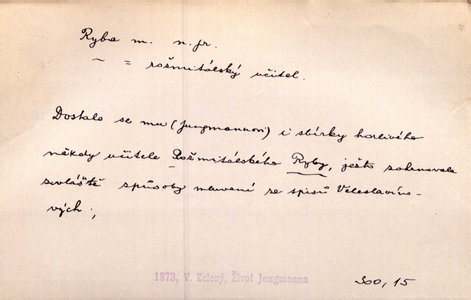 Ryba m. n. pr.
~ = rožmitálský učitel.
Dostalo se mu (Jungmannovi) i sbírky horlivého
někdy učitele Rožmitálského Ryby, ježto zahrnovala
zvláště spůsoby mluvení ze spisů Veleslavíno-
vých;
1873, V. Zelený, Život Jungmanna
300, 15